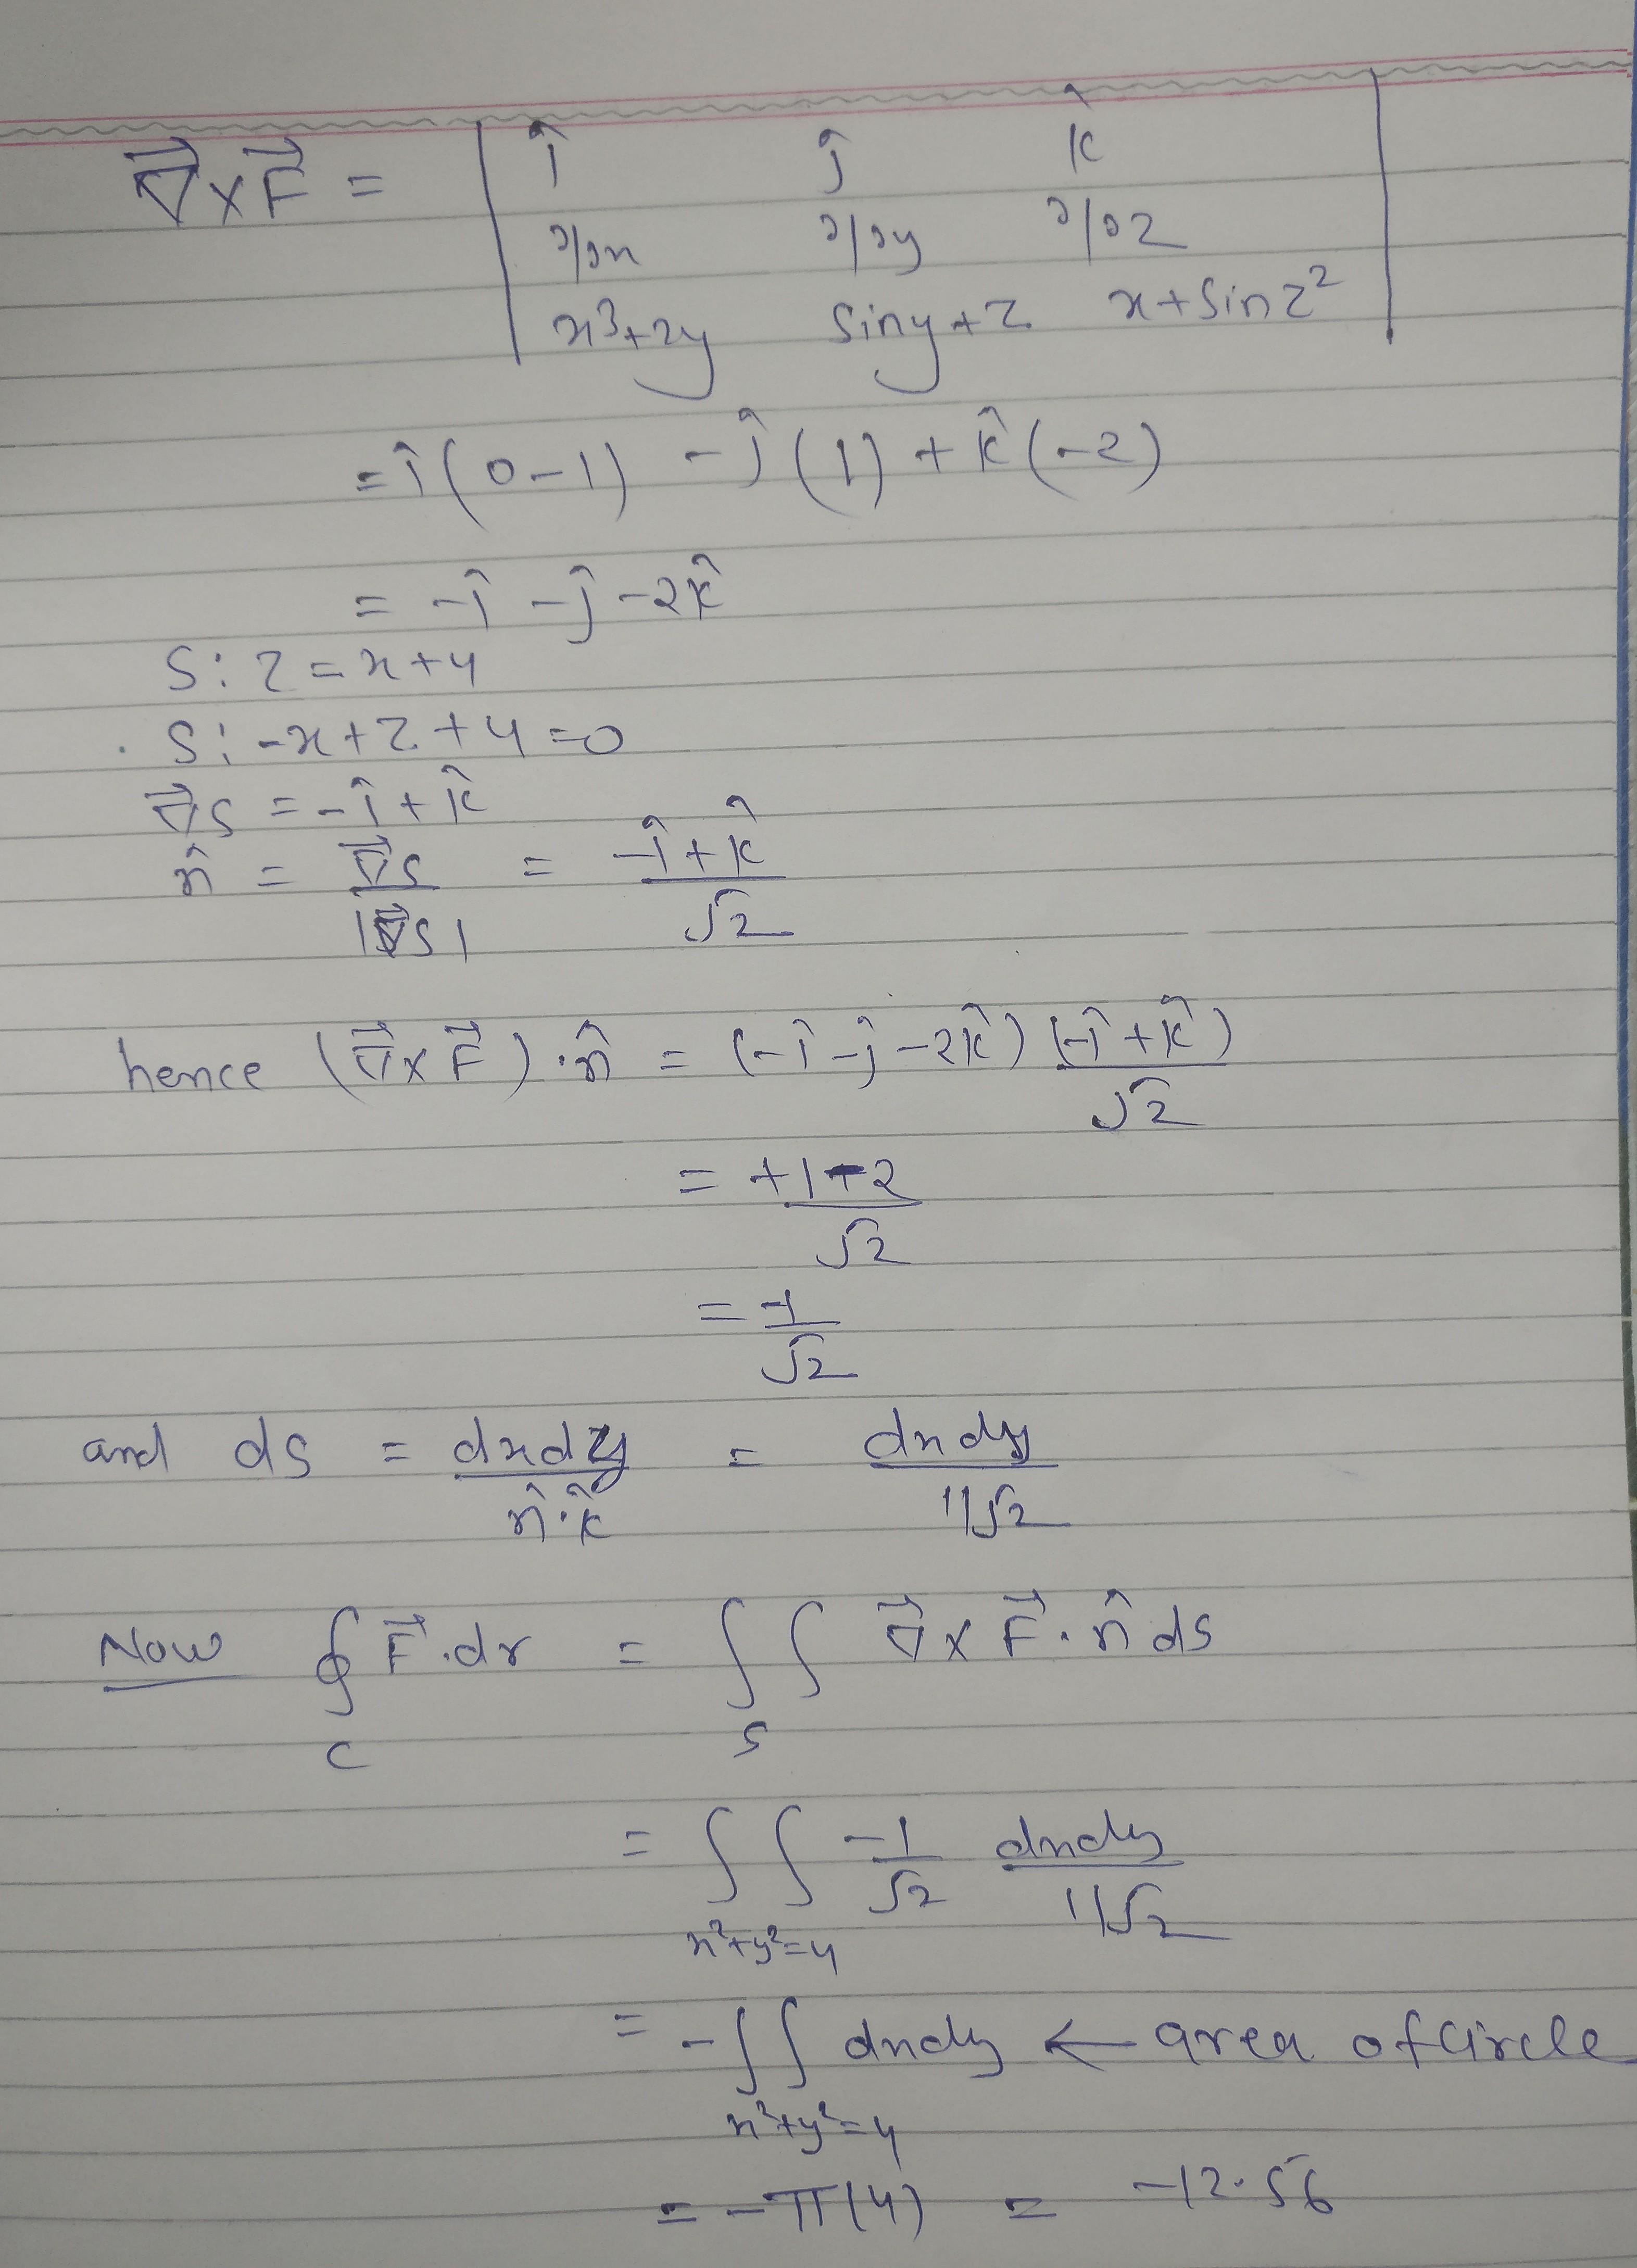 ∇⃗×F⃗ = | î ĵ k̂ |
| ∂/∂x ∂/∂y ∂/∂z |
| x³+2y siny+z x+sinz² |
= î(0-1) - ĵ(1) + k̂(-2)
= -î - ĵ - 2k̂
S: z = x+4
S: -x+z+4=0
∇⃗S = -î + k̂
n̂ = ∇⃗S / |∇⃗S| = (-î + k̂) / √2
hence (∇⃗×F⃗)·n̂ = (-î - ĵ - 2k̂) (-î + k̂) / √2
= +1-2 / √2
= -1 / √2
and ds = dxdy / n̂·k̂ = dxdy / 1/√2
Now ∮_C F⃗·dr = ∬_S ∇⃗×F⃗·n̂ ds
= ∬_{x²+y²=4} -1/√2 dxdy / 1/√2
= -∬_{x²+y²=4} dxdy ← area of circle
= -π(4) = -12.56